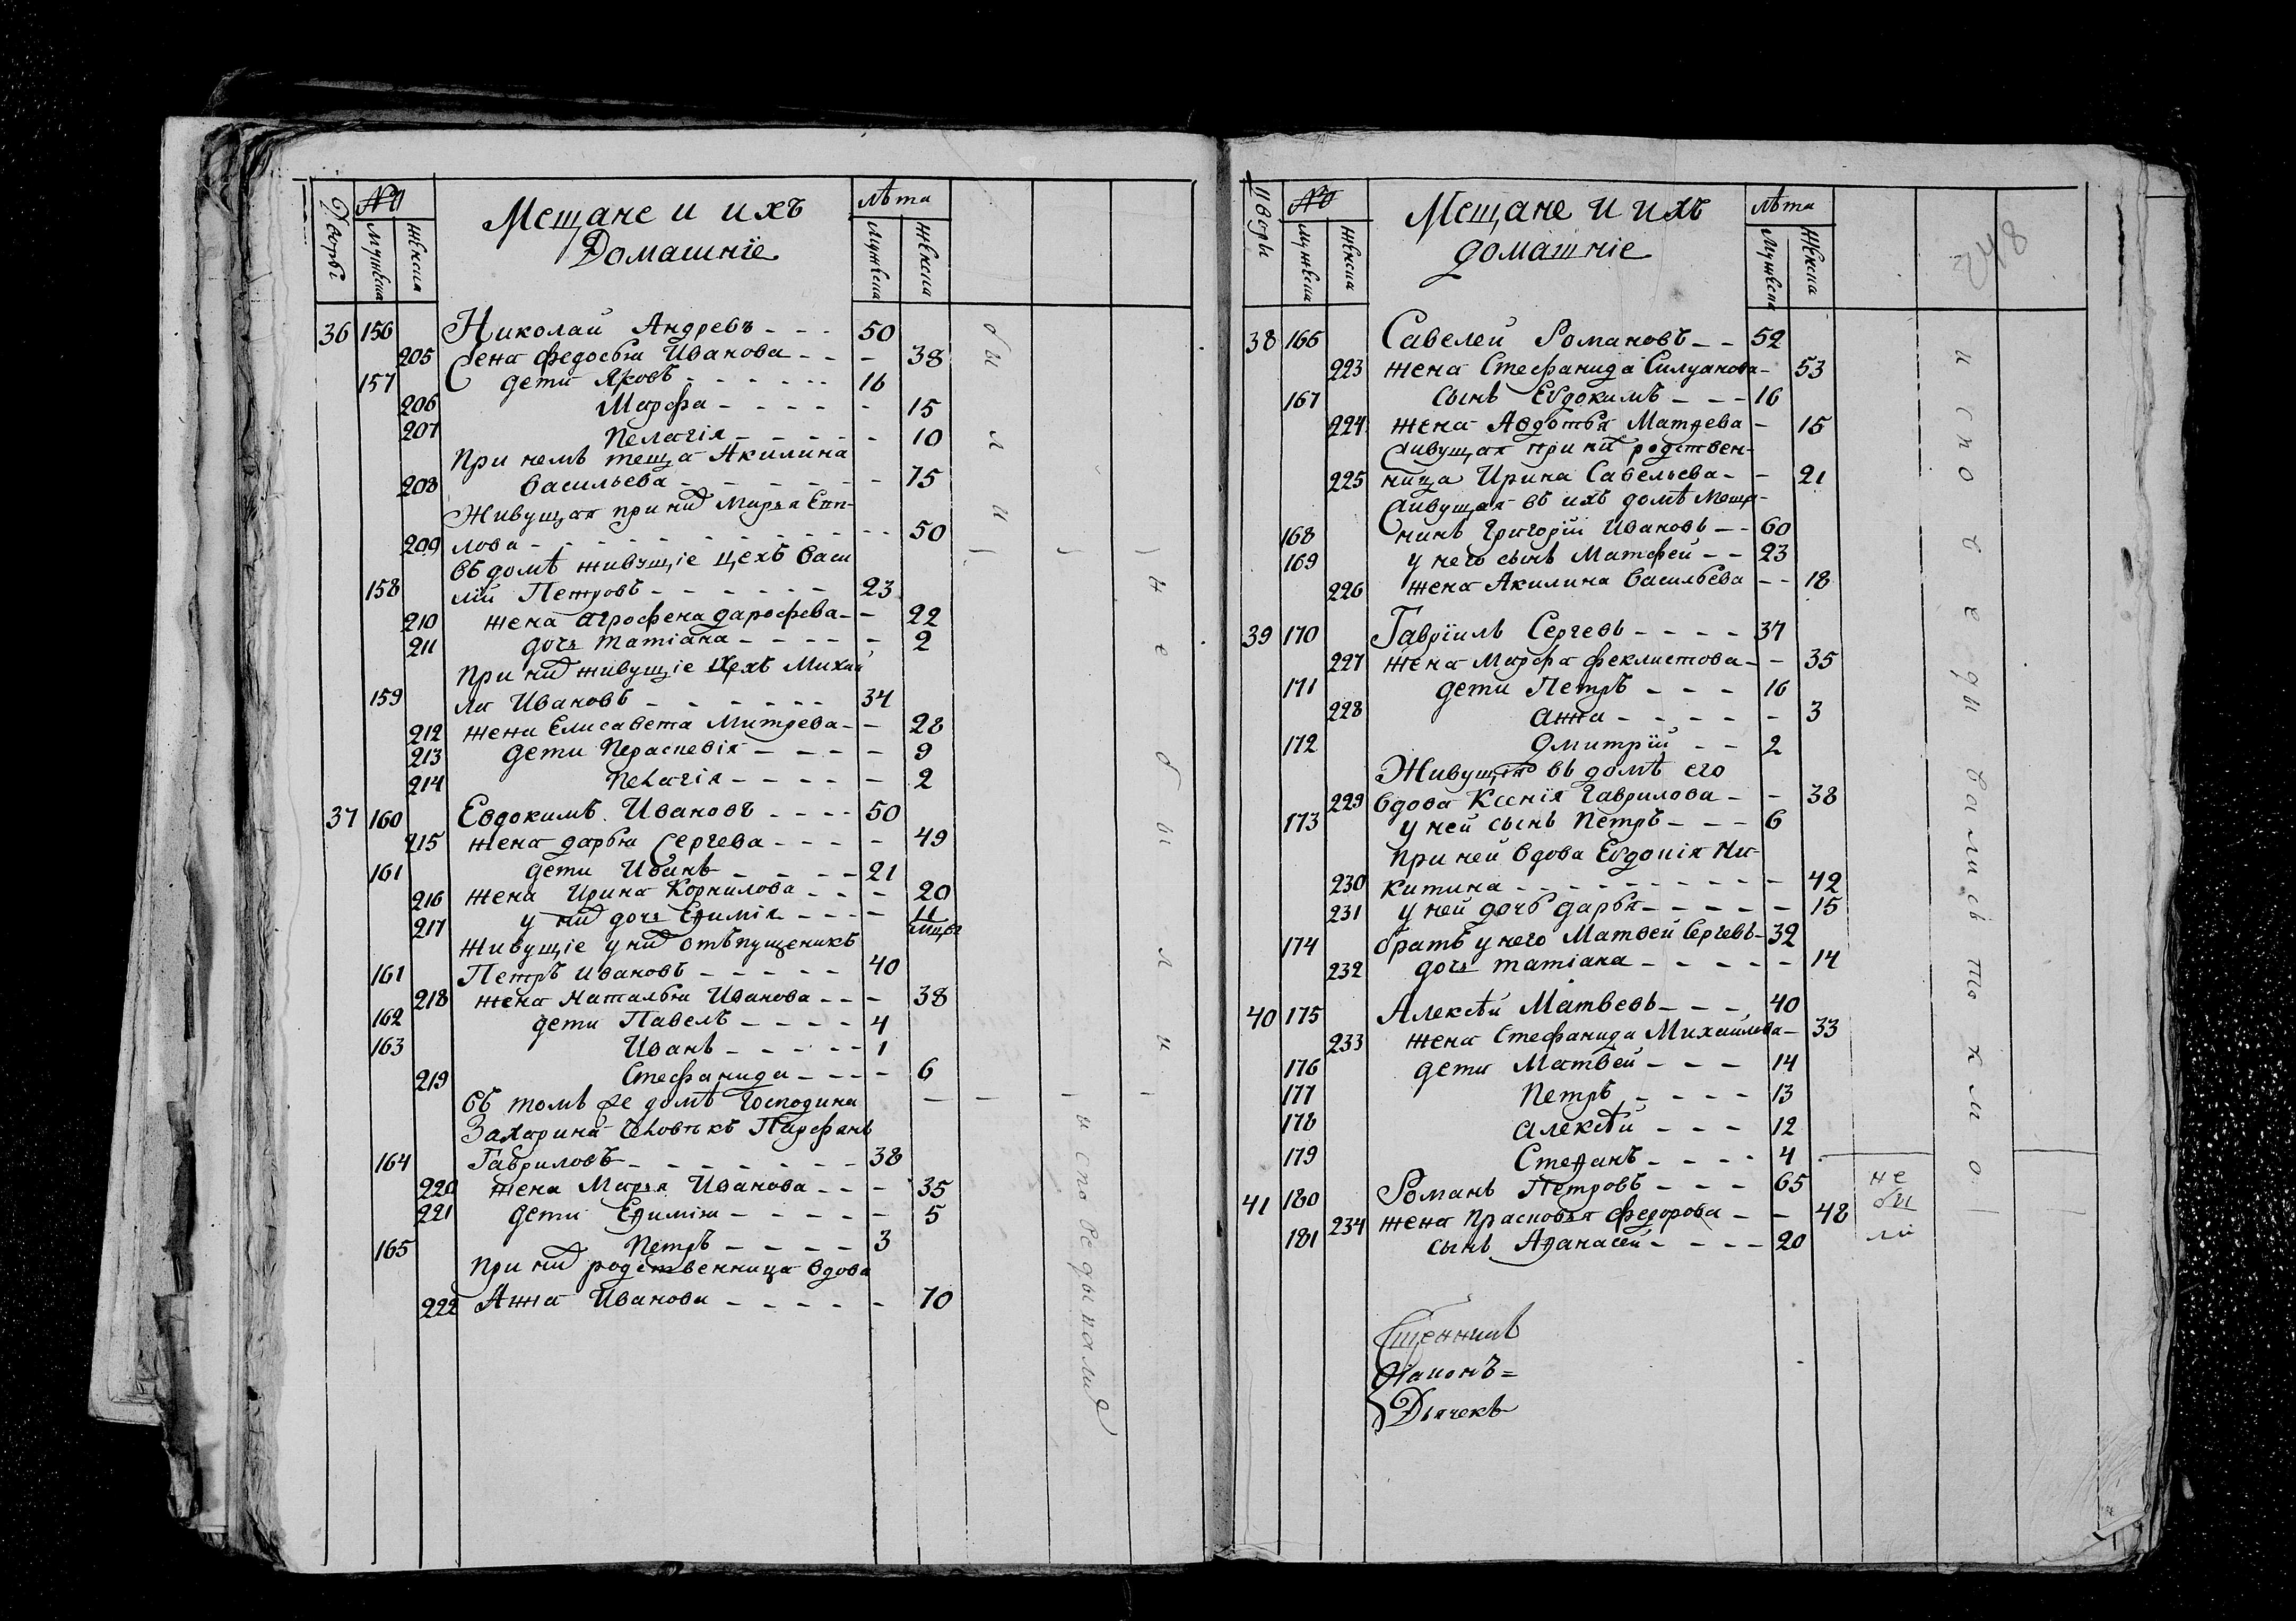 Дворы № Мещане и ихъ лѣта
мужеска женска Домашніе мужеска женска
36 156 Николай Андревъ - - - 50
205 Жена Федосья Иванова - - - 38
157 дети Яковъ - - - - - - 16
206 Марфа - - - - - 15
207 Пелагія - - - - - 10
При немъ теща Акилина
208 Васильева - - - - - - 75
Живущая при ни<sup>х</sup> Марья Епи-
209 лова - - - - - - - - - - 50
Въ домѣ живущіе цехъ Васи
158 лій Петровъ - - - - - - 23
210 жена Агрофена дарофева - - 22
211 дочь татіана - - - - - 2
При ни<sup>х</sup> живущіе цехъ Михай
159 ла Ивановъ - - - - - - 34
212 жена Елисавета Митрева - - 28
213 дети Параскевія - - - - 9
214 Пелагія - - - - - 2
37 160 Евдокимъ Ивановъ - - - - 50
215 жена дарья Сергева - - - - 49
161 дети Иванъ - - - - 21
216 жена Ирина Корнилова - - - 20
217 у ни<sup>х</sup> дочь Еѳимія - - - - 11
мцвъ
живущіе у ни<sup>х</sup> отъпущеникъ
161 Петръ Ивановъ - - - - - 40
218 жена Наталья Иванова - - - 38
162 дети Павелъ - - - - 4
163 Иванъ - - - - - 1
219 Стефанида - - - - 6
Въ томъ же домѣ Господина
Захарина Человѣкъ Парфенъ
164 Гавриловъ - - - - - - - 38
220 жена Марья Иванова - - - 35
221 дети Еѳимія - - - - - 5
165 Петръ - - - - 3
При ни<sup>х</sup> родственница вдова
222 Анна Иванова - - - - - 70
были
не были
исповеданы
Дворы № Мещане и ихъ лѣта
мужеска женска домашніе мужеска женска
248
38 166 Савелей Романовъ - - 52
223 жена Стефанида Силуанова - 53
167 сынъ Евдокимъ - - - 16
224 жена Авдотья Матѳева - 15
Живущая при ни<sup>х</sup> родствен-
225 ница Ирина Савельева - - 21
Живущая въ ихъ домѣ меща-
168 нинъ Григорій Ивановъ - - 60
169 у него сынъ Матфей - - 23
226 жена Акилина Васильева - - 18
39 170 Гавріилъ Сергевъ - - - - 37
227 жена Марфа феклистова - - 35
171 дети Петръ - - - 16
228 Анна - - - - - 3
172 Дмитрій - - 2
Живущая въ домѣ его
229 Вдова Ксенія Гаврилова - - 38
173 у ней сынъ Петръ - - - 6
При ней вдова Евдокія Ни-
230 китина - - - - - - - - - 42
231 у ней дочь дарья - - - - - 15
174 братъ у него Матвей Сергевъ - 32
232 дочь татіана - - - - - 14
40 175 Алексѣй Матвевъ - - - 40
233 жена Стефанида Михайлова - 33
176 дети Матвей - - - 14
177 Петръ - - - - 13
178 Алексѣй - - - 12
179 Стеѳанъ - - - - 4
41 180 Романъ Петровъ - - - 65
234 жена Прасковья федорова - - 48
181 сынъ Аѳанасей - - - - 20
не
бы
ли
исповедывались токмо
Сщенникъ
Діаконъ =
Дьячекъ